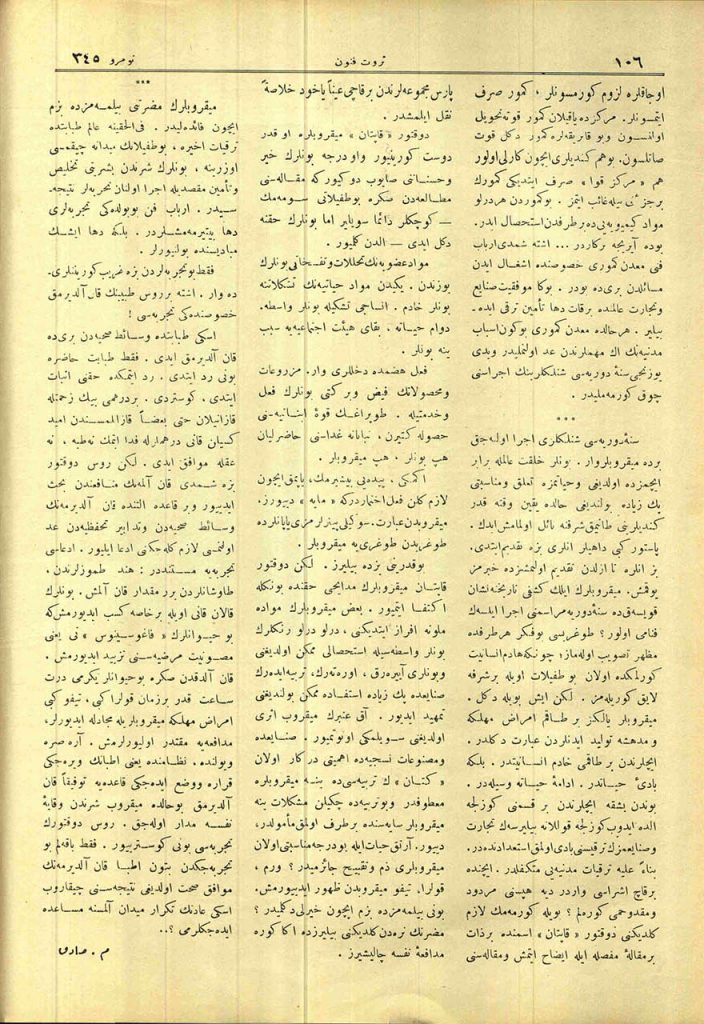 ١٠٦
ثروت فنون
نومرو ٣٤٥
اوجاقلره لزوم كورمسونلر ، كمور صرف
ايتمسونلر. مركزده ياقيلان كمور قوته تحويل
اولنسون وبو فابريقه لره كمور دكل قوت
صاتلسون. بوهم كنديلرى ايچون كارلى اولور
هم « مركز قوا » صرف ايتديكى كمورك
برجزئنى بيله غائب ايتمز . بوكموردن هردرلو
مواد كيميويه يى ده برطرفدن استحصال ايدر.
بوده آيريجه بركاردر ... اشته شمدى ارباب
فنى معدن كمورى خصوصنده اشغال ايدن
مسائلدن برى ده بودر . بوكا موفقيت صنايع
وتجارت عالمنده برقات دها تأمين ترقى ايده-
بيلير . هرحالده معدن كمورى بوكون اسباب
مدنيه نك اك مهملرندن عد اولنمليدر ويدى
يوزنجى سنۀ دوريه سى شنلكلرينك اجراسى
چوق كورمه مليدر.
***
سنۀ دوريه سى شنلكلرى اجرا اوله جق
برده ميقروبلروار . بونلر خلقت عالمله برابر
ايچمزده اولديغى وحياتمزه تعلق ومناسبتى
پك زياده بولنديغى حالده يقين وقته قدر
كنديلرينى طانيمق شرفنه نائل اولمامش ايدك.
پاستور كبى داهيلر انلرى بزه تقديم ايتدى.
بز انلره تا ازلدن تقديم اولنمشزده خبرمز
يوقمش. ميقروبلرك ايلك كشفى تاريخنه شان
قويسه ق ده سنۀ دوريه مراسمنى اجرا ايله سك
فنامى اولور؟ طوغريسى بوفكر هرطرفده
مظهر تصويب اوله ماز؛ چونكه هادم انسانيت
كورلمكده اولان بو طفيليات اويله برشرفه
لايق كوريله مز . لكن ايش بويله دكل .
ميقروبلر يالكز بر طاقم امراض مهلكه
و مدهشه توليد ايدنلردن عبارت دكلدر .
ايچلرندن بر طاقمى خادم انسانيتدر . بلكه
بادئ حياتدر . ادامۀ حياته وسيله در .
بوندن بشقه ايچلرندن بر قسمنى كوزلجه
الده ايدوب كوزلجه قوللانه بيليرسه ك تجارت
وصنايعمزك ترقيسنى بادى اولمق استعدادنده در.
بناءً عليه ترقيات مدنيه يى متكفلدر . ايچنده
برقاچ اشراسى واردر ديه هپسنى مردود
ومقدوحمى كوره لم ؟ بويله كورمه مك لازم
كلديكنى دوقتور « قاپتان » اسمنده برذات
بر مقالۀ مفصله ايله ايضاح ايتمش ومقاله سنى
پارس مجموعه لرندن بر قاچى عيناً ياخود خلاصةً
نقل ايلمشدر .
دوقتور « قاپتان » ميقروبلره او قدر
دوست كورينيور واودرجه بونلرك خير
وحسناتنى صايوب دوكيور كه مقاله سنى
مطالعه دن صكره بوطفيلاتى سومه مك
— كوچكلر دائما سويلير اما بونلرك حقنه
دكل ايدى — الدن كلميور .
مواد عضويه نك تحللات وتفسخاتى بونلرك
يوزندن . يكيدن مواد حياتيه نك تشكلاتنه
بونلر خادم . انساجى تشكيله بونلر واسطه .
دوام حياته ، بقاى هيئت اجتماعيه يه سبب
ينه بونلر .
فعل هضمده دخللرى وار. مزروعات
ومحصولاتك فيض وبركتى بونلرك فعل
وخدمتيله . طوپراغك قوۀ انباتيه سنى
حصوله كتيرن ، نباتاته غداسنى حاضرليان
هپ بونلر ، هپ ميقروبلر .
اكمكى ، پيده يى پيشيرمك، ياپمق ايچون
لازم كلن فعل اختماردركه « مايه » ديبورز.
ميقروبدن عبارت. سوكيلى پينيرلرمزى ياپانلرده
طوغريدن طوغرى يه ميقروبلر .
بوقدرينى بزده بيليرز . لكن دوقتور
قاپتان ميقروبلرك مدايحى حقنده بونكله
اكتفا ايتميور . بعض ميقروبلرك مواده
ملونه افراز ايتديكنى ، درلو درلو رنكلرك
بونلر واسطه سيله استحصالى ممكن اولديغنى
وبونلرى آييره رق ، اورته رك، تربيه ايده رك
صنايعده پك زياده استفاده ممكن بولنديغنى
تمهيد ايديور . آق عنبرك ميقروب اثرى
اولديغنى سويلمكى اونوتميور . صنايعده
ومصنوعات نسجيه ده اهميتى در كار اولان
« كتان » ك تربيه سى ده ينه ميقروبلره
معطوفدر وبوتربيه ده چكيلن مشكلات ينه
ميقروبلر سايه سنده برطرف اولمق مأمولدر،
ديبور. آرتق حيات ايله بودرجه مناسبتى اولان
ميقروبلرى ذم وتقبيح جائزميدر ؟ ورم ،
قولرا، تيفو ميقروبدن ظهور ايديورمش.
بونى بيلمه مزده بزم ايچون خيرلى دكلميدر ؟
مضرتك نره دن كلديكنى بيليرزده اكا كوره
مدافعۀ نفسه چاليشيرز .
***
ميقروبلرك مضرتنى بيلمه مزده بزم
ايچون فائده ليدر . فى الحقيقه عالم طبابتده
ترقيات اخيره ، بوطفيلاتك ميدانه چيقمسى
اوزرينه ، بونلرك شرندن بشريتى تخليص
وتأمين مقصديله اجرا اولنان تجربه لر نتيجه-
سيدر . ارباب فن بويولده كى تجربه لرى
دها بيتيرمه مشلردر . بلكه دها ايشك
مباديسنده بولنيورلر .
فقط بوتجربه لردن بزه غريب كورينلرى
ده وار. اشته بر روس طبيبنك قان آلديرمق
خصوصنده كى تجربه سى !
اسكى طبابتده وسائط صحيه دن برى ده
قان آلديرمق ايدى . فقط طبابت حاضره
بونى رد ايتدى . رد ايتمكده حقنى اثبات
ايتدى ، كوستردى . بردرهمى بيك زحمتله
قازانيلان حتى بعضاً قازانلمسندن اميد
كسيلن قانى درهملرله فدا ايتمك نه طبه ، نه
عقله موافق ايدى . لكن روس دوقتور
بزه شمدى قان آلمه نك منافعندن بحث
ايديبور وبر قاعده التنده قان آلديرمه نك
وسائط صحيه دن وتدابير تحفظيه دن عد
اولنمسى لازم كله جكنى ادعا ايليور. ادعاسى
تجربه يه مستنددر : هند طموزلرندن ،
طاوشانلردن بر مقدار قان آلمش . بونلرك
قالان قانى اويله برخاصه كسب ايديورمش كه
بو حيوانلرك « فاغوسيتوس » نى يعنى
مصونيت مرضيه سنى تزييد ايديورمش .
قان آلدقدن صكره بوحيوانلر يكرمى درت
ساعت قدر برزمان قولرا كبى ، تيفو كبى
امراض مهلكه ميقروبلريله مجادله ايديورلر،
مدافعه يه مقتدر اوليورلرمش . آره صره
وبولنده . نظامنده يعنى اطبانك ويره جكى
قراره ووضع ايده جكى قاعده يه توفيقاً قان
آلديرمق بوحالده ميقروب شرندن وقايۀ
نفسه مدار اوله جق . روس دوقتورك
تجربه سى بونى كوسترييور . فقط باقه لم بو
تجربه جكدن بتون اطبا قان آلديرمه نك
موافق صحت اولديغى نتيجه سنى چيقاروب
اسكى عادتك تكرار ميدان آلمسنه مساعده
ايده جكلرمى ؟..
م . صادق